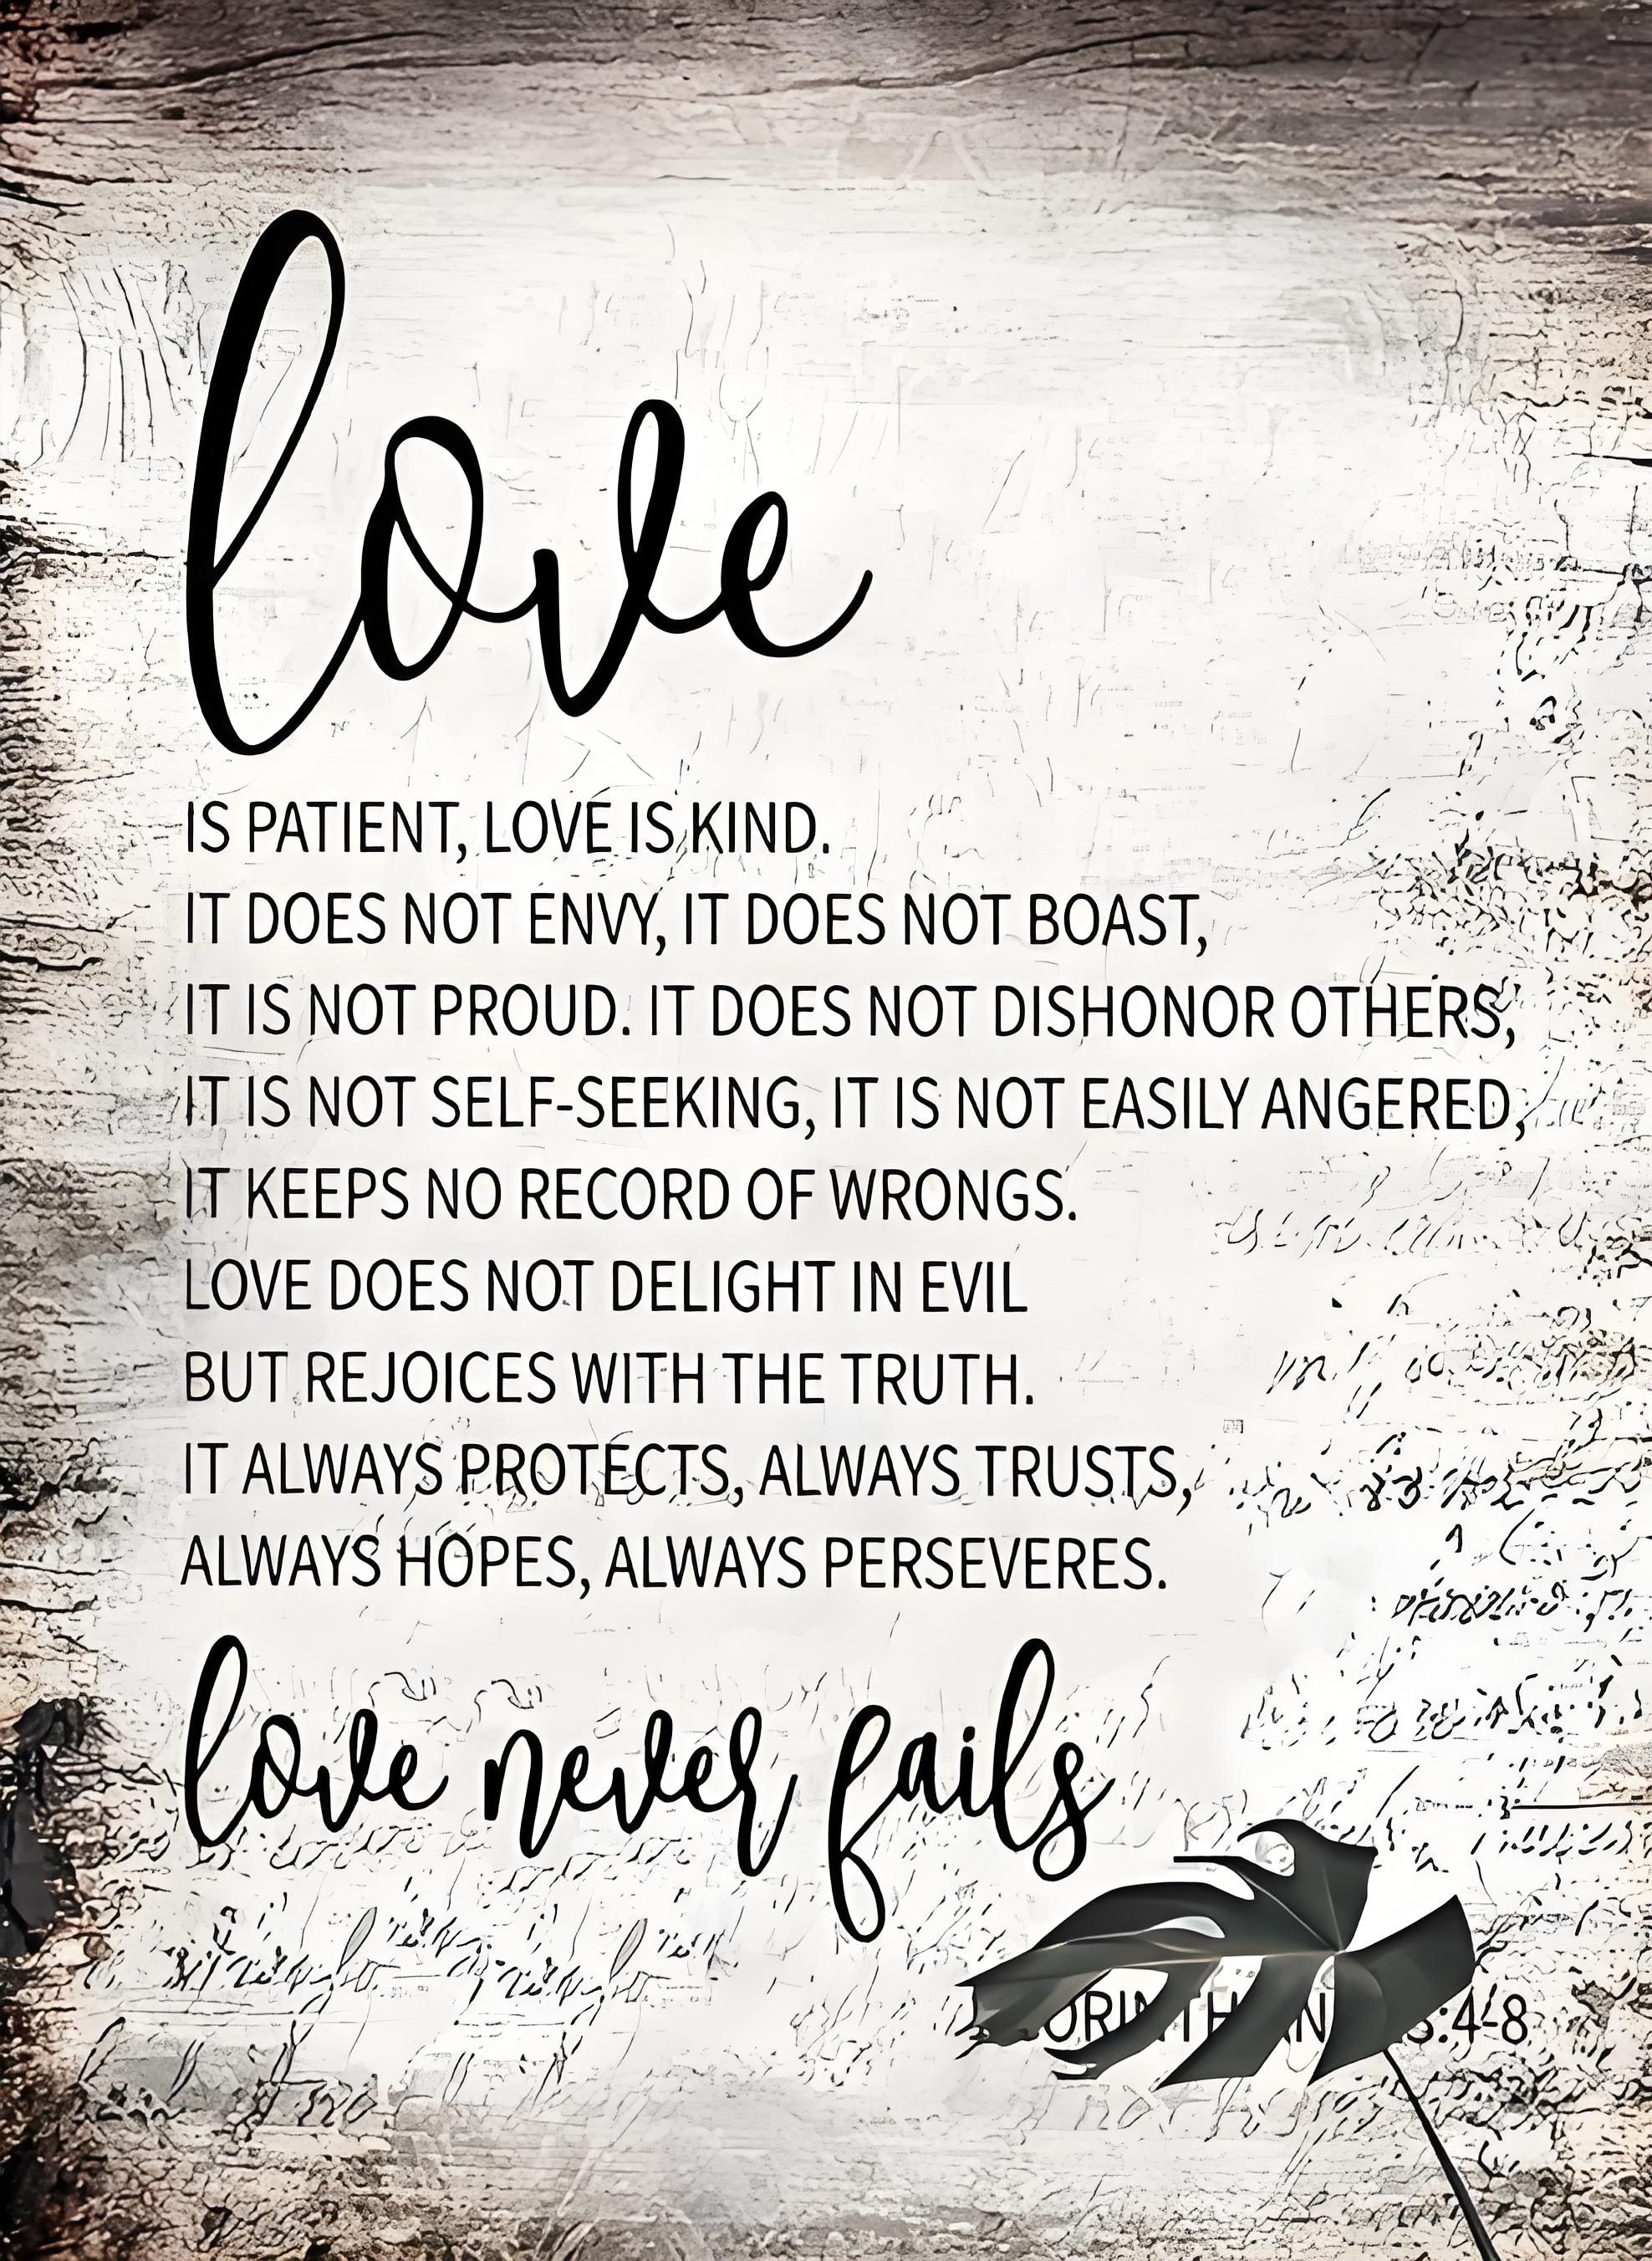 love
IS PATIENT, LOVE IS KIND.
IT DOES NOT ENVY, IT DOES NOT BOAST,
IT IS NOT PROUD. IT DOES NOT DISHONOR OTHERS,
IT IS NOT SELF-SEEKING, IT IS NOT EASILY ANGERED,
IT KEEPS NO RECORD OF WRONGS.
LOVE DOES NOT DELIGHT IN EVIL
BUT REJOICES WITH THE TRUTH.
IT ALWAYS PROTECTS, ALWAYS TRUSTS,
ALWAYS HOPES, ALWAYS PERSEVERES.
love never fails